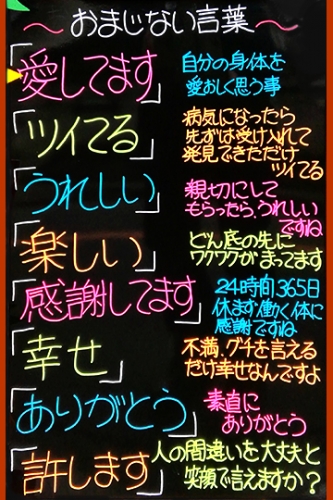 ～おまじない言葉～
「愛してます」
自分の身体を
愛おしく思う事
「ツイてる」
病気になったら
先ずは受け入れて
発見できただけ
ツイてる
「うれしい」
親切にして
もらったら、うれしい
ですね
「楽しい」
どん底の先に
ワクワクが まってます
「感謝してます」
24時間365日
休まず働く体に
感謝ですね
「幸せ」
不満、グチを言える
だけ幸せなんですよ
「ありがとう」
素直に
ありがとう
「許します」
人の間違いを大丈夫と
笑顔で言えますか？